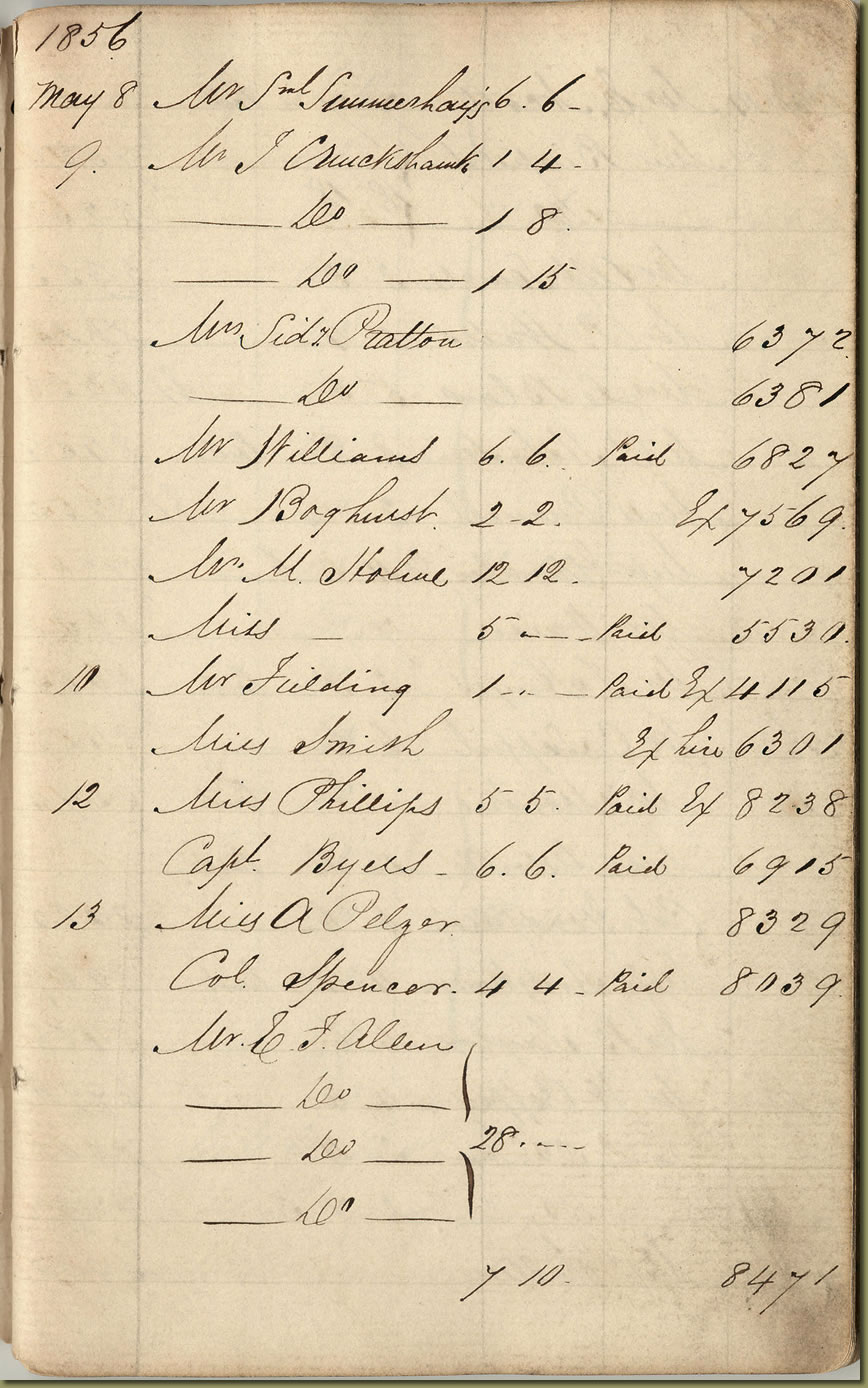 1856
May 8 Mr Sml Summerhays 6. 6 -
9. Mr J Cruckshank 1 4 -
Do 1 8.
Do 1 15
Mrs Sidy Pratton 6372
Do 6381
Mr Williams 6. 6. Paid 6827
Mr Boghurst. 2 - 2. Ex 7569.
Mr. M. Holme 12 12. 7201
Miss — 5 - — Paid 5530.
10 Mr Fielding 1 - - — Paid Ex 4115
Miss Smith Ex hire 6301
12 Miss Phillips 5 5. Paid Ex 8238
Capt. Byers - 6. 6. Paid 6915
13 Miss A Pelzer. 8329
Col. Spencer. 4 4 - Paid 8039.
Mr. E. F. Allen
Do
Do 28. - —
Do
7 10. 8471